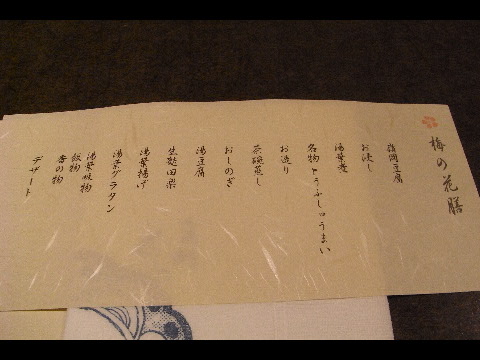 梅の花膳
嶺岡豆腐
お浸し
湯葉煮
名物とうふしゅうまい
お造り
茶碗蒸し
おしのぎ
湯豆腐
生麩田楽
湯葉揚げ
湯葉グラタン
湯葉吸物
飯物
香の物
デザート